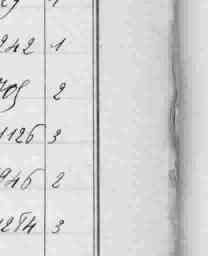 242 1
705 2
1126 3
946 2
1284 3